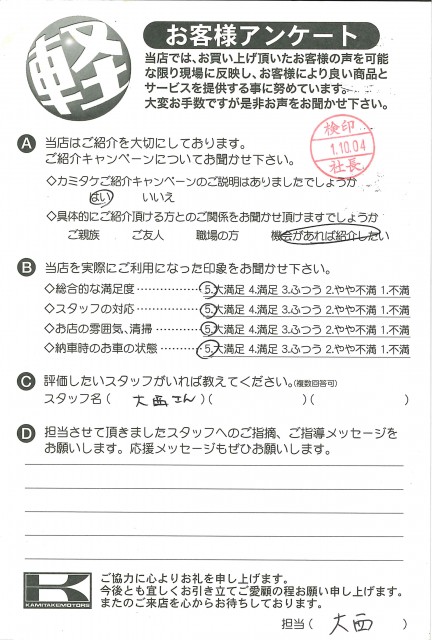 軽
お客様アンケート
当店では、お買い上げ頂いたお客様の声を可能
な限り現場に反映し、お客様により良い商品と
サービスを提供する事に努めています。
大変お手数ですが是非お声をお聞かせ下さい。
検印
1.10.04
社長
A 当店はご紹介を大切にしております。
ご紹介キャンペーンについてお聞かせ下さい。
◇カミタケご紹介キャンペーンのご説明はありましたでしょうか
はい いいえ
◇具体的にご紹介頂ける方とのご関係をお聞かせ頂けますでしょうか
ご親族 ご友人 職場の方 機会があれば紹介したい
B 当店を実際にご利用になった印象をお聞かせ下さい。
◇総合的な満足度‥‥‥‥‥5.大満足 4.満足 3.ふつう 2.やや不満 1.不満
◇スタッフの対応‥‥‥‥‥5.大満足 4.満足 3.ふつう 2.やや不満 1.不満
◇お店の雰囲気、清掃‥‥‥5.大満足 4.満足 3.ふつう 2.やや不満 1.不満
◇納車時のお車の状態‥‥‥5.大満足 4.満足 3.ふつう 2.やや不満 1.不満
C 評価したいスタッフがいれば教えてください。(複数回答可)
スタッフ名( 大西さん )( )( )
D 担当させて頂きましたスタッフへのご指摘、ご指導メッセージを
お願いします。応援メッセージもぜひお願いします。
K
KAMITAKEMOTORS
ご協力に心よりお礼を申し上げます。
今後とも宜しくお引き立てご愛顧の程お願い申し上げます。
またのご来店を心からお待ちしております。
担当( 大西 )